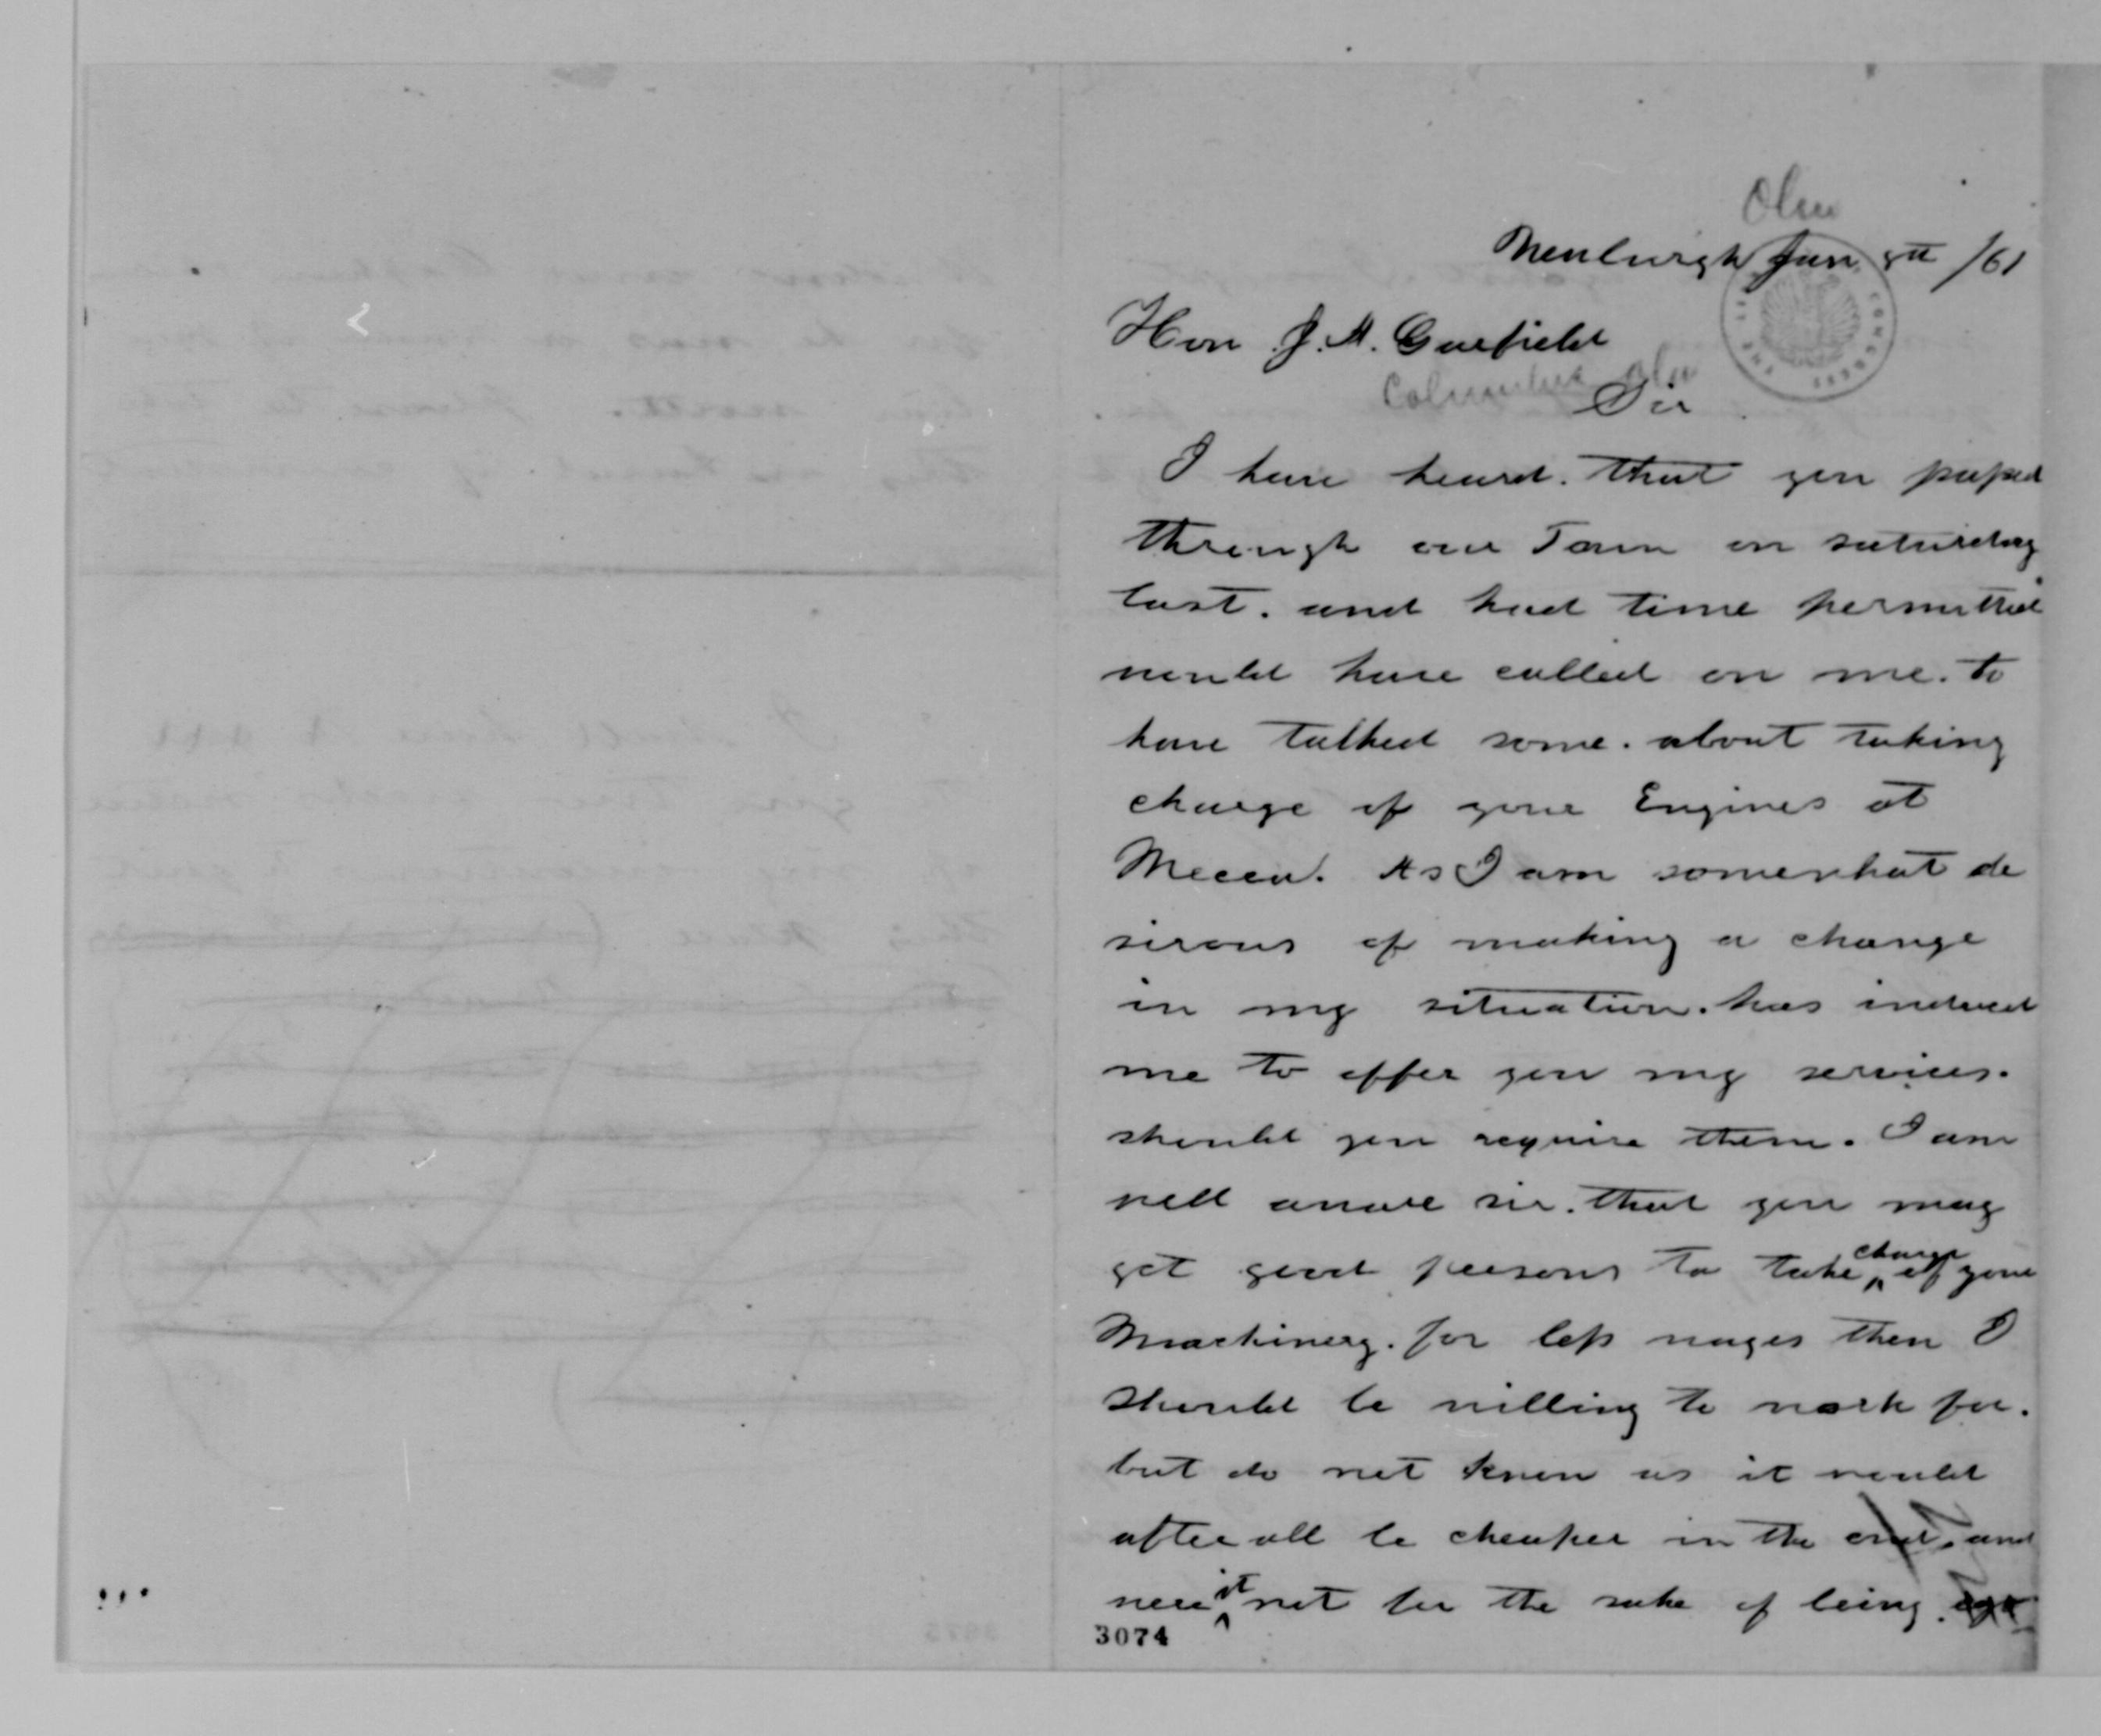 Ohio
Newburgh Jan 8th /61
Hon J. A. Garfield
Columbus Ohio
Sir
I have heard. that you passed
through our Town on saturday
last. and had time permitted
would have called on me. to
have talked some. about taking
charge of your Engines at
Mecca. As I am somewhat de
sirous of making a change
in my situation. has induced
me to offer you my services.
should you require them. I am
well aware sir. that you may
get good persons to take charge of your
Machinery. for less wages then I
should be willing to work for.
but do not know as it would
after all be cheaper in the end. and
were it not for the sake of being
3074